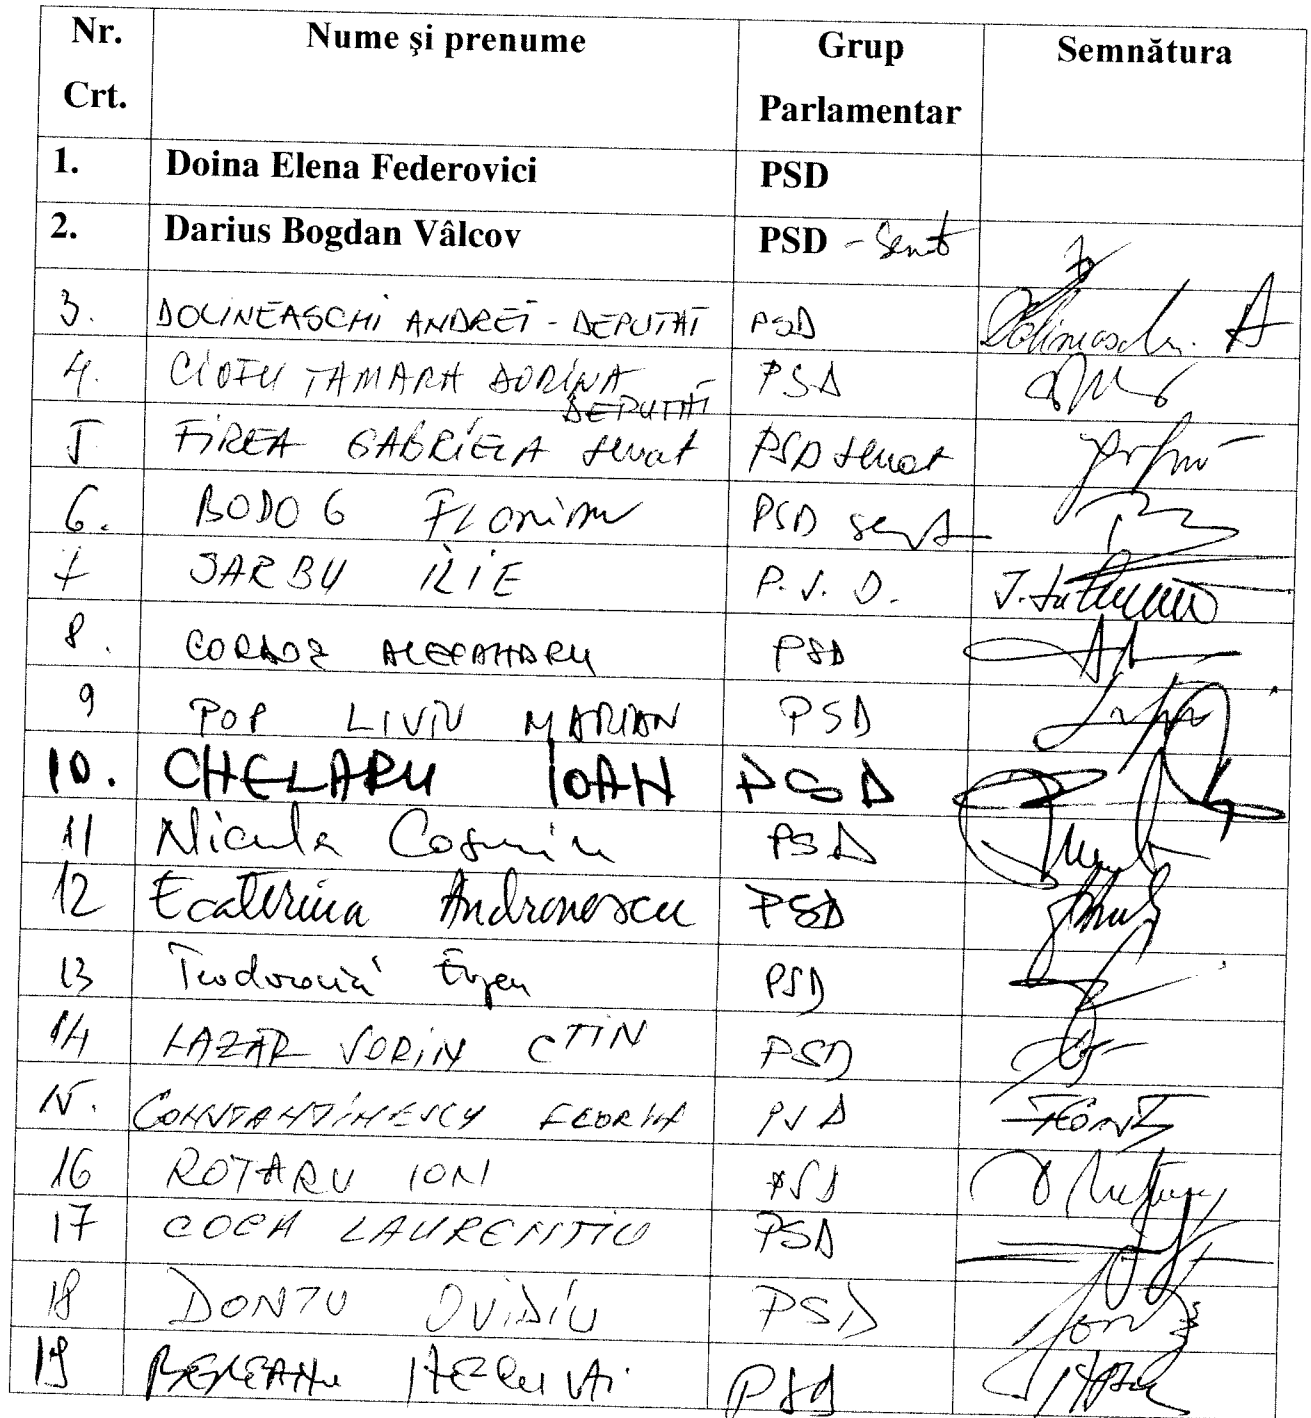 Nr. Crt. Nume şi prenume Grup Parlamentar Semnătura
1. Doina Elena Federovici PSD
2. Darius Bogdan Vâlcov PSD -
3. DOLINEASCHI ANDREI - DEPUTAT PSD Dolineaschi. A
4. CIOFU TAMARA DORINA DEPUTAT PSD
5 FIREA GABRIELA senat PSD senat
6. BODOG Florian PSD senat
7 SARBU ILIE P.S.D.
8. CORDOȘ ALEXANDRU PSD
9 POP LIVIU MARIAN PSD
10. CHELARU IOAN PSD
11 Nicula Cosmin PSD
12 Ecaterina Andronescu PSD
13 Teodorovici Eugen PSD
14 LAZAR SORIN CTIN PSD
15. CONSTANTINESCU FLORIN PSD
16 ROTARU ION PSD
17 COCA LAURENTIU PSD
18 DONTU OVIDIU PSD
19 PSD